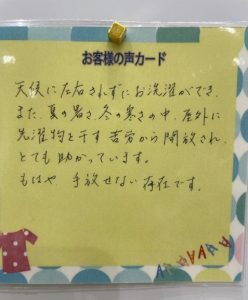 お客様の声カード
天候に左右されずにお洗濯ができ、
また、夏の暑さ、冬の寒さの中、屋外に
洗濯物を干す苦労から開放され、
とても助かっています。
もはや、手放せない存在です。